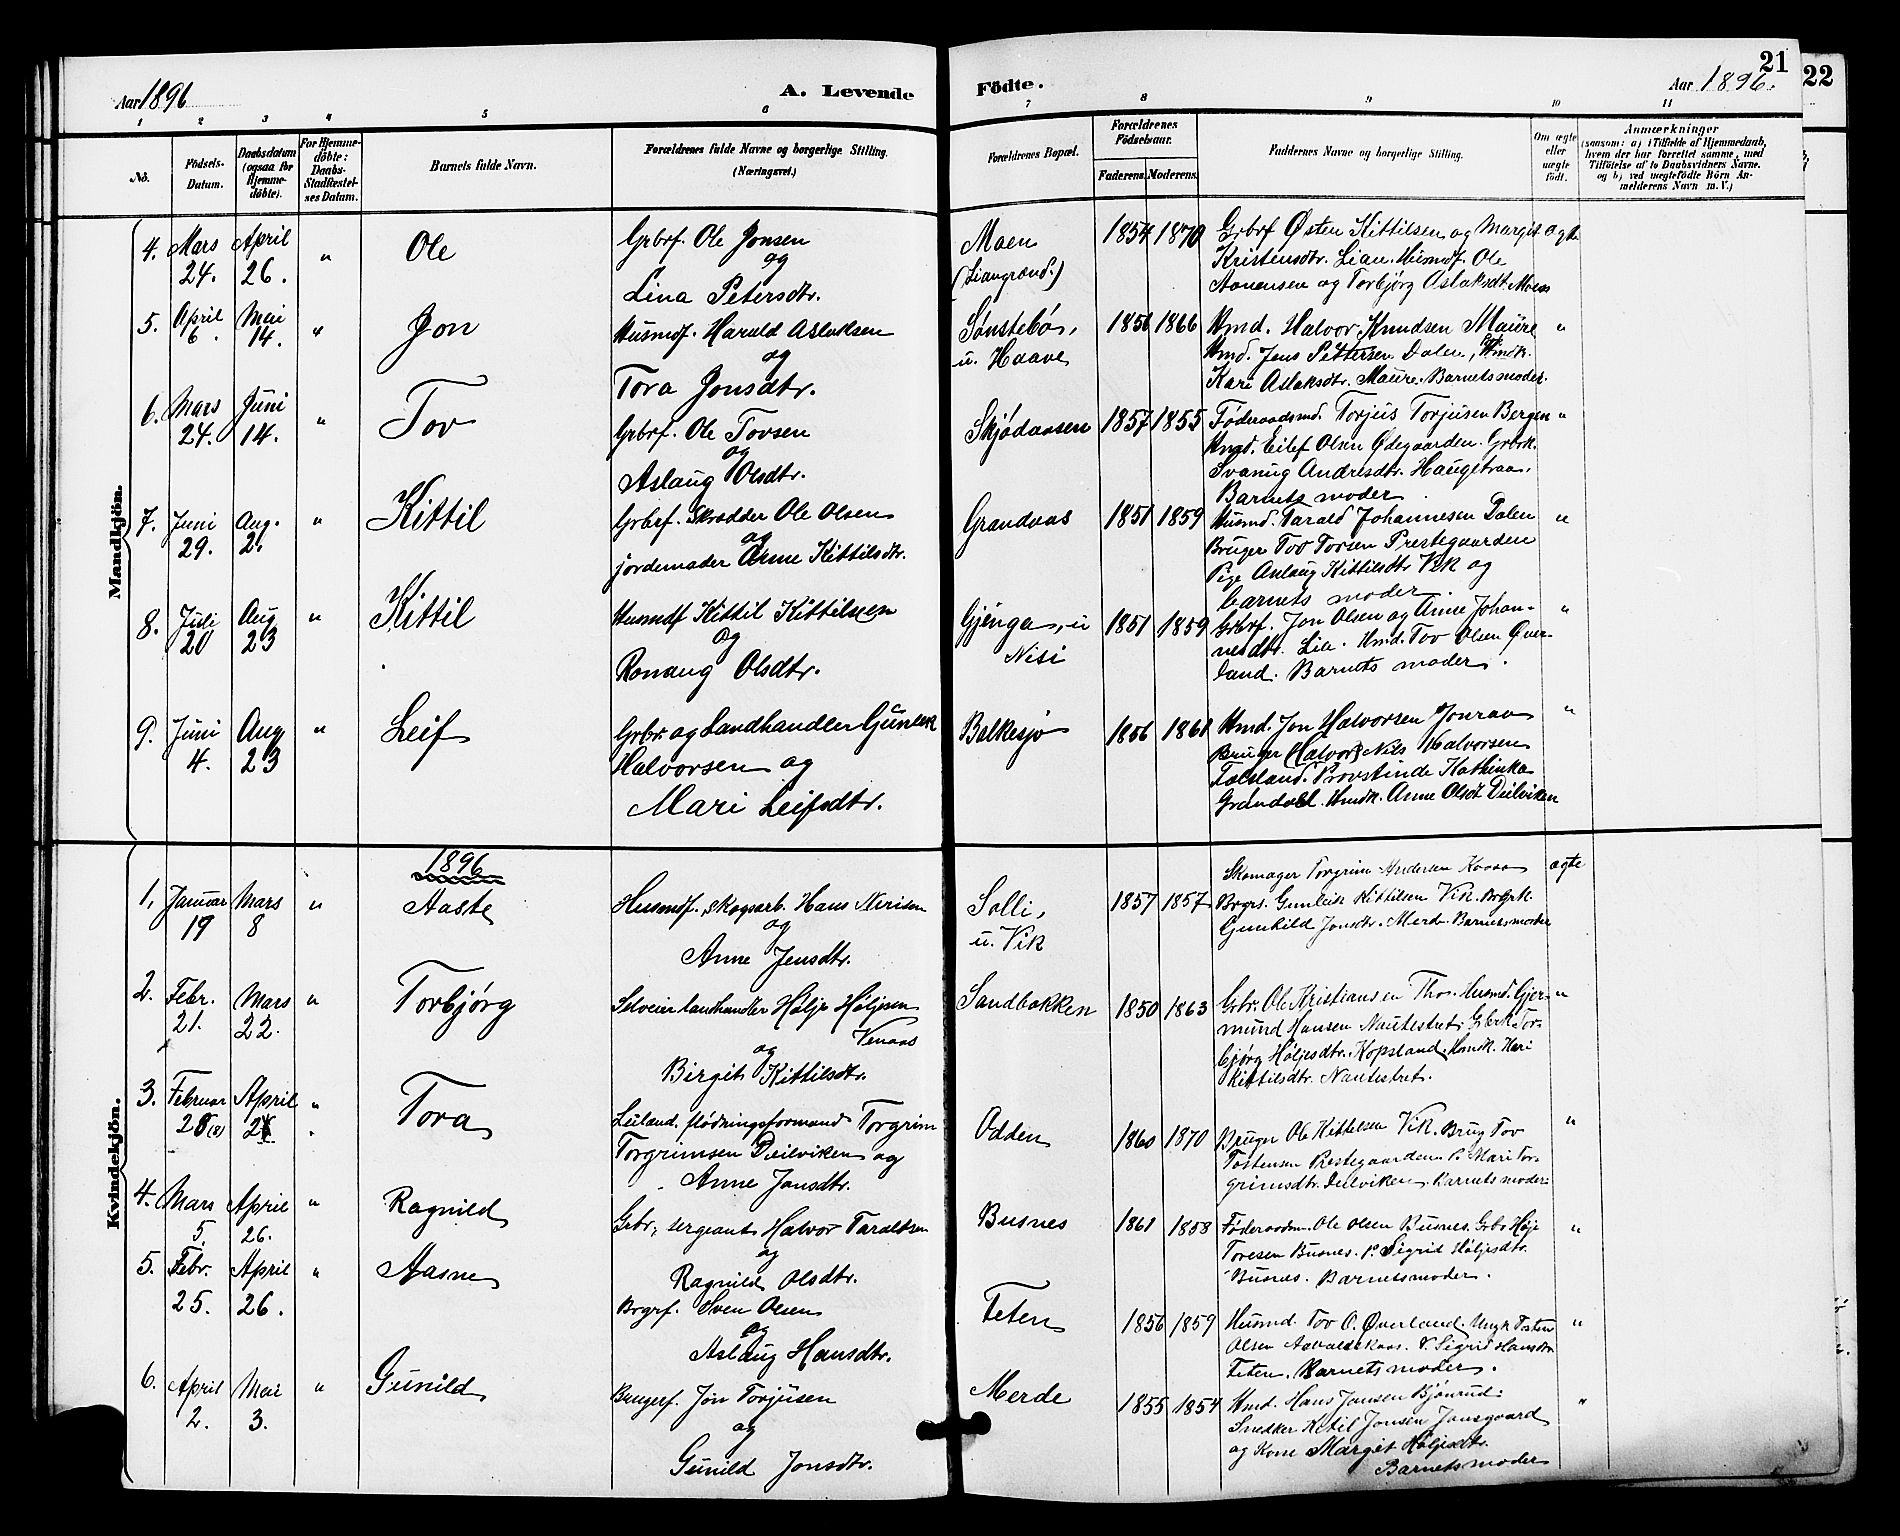 Aar 1896
A. Levende
Födte.
Aar 1896.
21
22
1 2 3 4 5 6 7 8 9 10 11
No.
Födsels-Datum.
Daabsdatum (ogsaa for Hjemme-döbte).
For Hjemme-döbte: Daabs-Stadfæstel-ses Datum.
Barnets fulde Navn.
Forældrenes fulde Navne og borgerlige Stilling.
(Næringsvei.)
Forældrenes Bopæl.
Forældrenes Födselsaar.
Faderens. Moderens.
Faddernes Navne og borgerlige Stilling.
Om ægte eller uægte födt.
Anmærkninger
(saasom: a) i Tilfælde af Hjemmedaab, hvem der har forrettet samme, med Tilföielse af to Daabsvidners Navne. og b) ved uægtefödte Börn An-melderens Navn m. V.)
Mandkjön.
4. Mars 24. April 26. " Ole
Grbrf. Ole Jonsen
og
Lina Petersdtr.
Moen
(Liangrænd.)
1854 1870
Grbrf Østen Kittilsen og Margit
Kristensdtr. Lian. Husmdf. Ole
Aanensen og Torbjørg Aslaksdt. Moen
ægte
5. April 6. Mai 14. " Jon
Husmdf. Harald Aslaksen
og
Tora Jonsdtr.
Sønstebø,
u. Haave
1856 1866
Hmd. Halvor Knudsen Maure
Hmd. Jens Pettersen Dalen, Hmdk.
Kari Aslaksdtr. Maure. Barnets moder.
"
6. Mars 24. Juni 14. " Tov
Grbrf. Ole Tovsen
og
Aslaug Olsdtr.
Skjødaasen
1857 1855
Føderaadsmd. Torjus Torjusen Bergen
Ungd. Eilef Olsen Ødegaarden. Grbrk.
Svanug Andresdtr. Haugetraa.
Barnets moder.
"
7. Juni 29. Aug. 2. " Kittil
Grbrf. Skrædder Ole Olsen
og
jordemoder Anne Kittilsdtr.
Grandaas
1851 1859
Husmd. Tarald Johannesen Dalen
Bruger Tov Tovsen Prestegaarden
Pige Aslaug Kittilsdtr Vik og
barnets moder.
"
8. Juli 20 Aug 23 " Kittil
Husmdf Kittil Kittilsen
og
Ronaug Olsdtr.
Gjenga, u
Nisi
1851 1859
Grbrf. Jon Olsen og Anne Johan-
nesdtr. Lie. Hmd. Tov Olsen Øver-
land. Barnets moder.
"
9. Juni 4. Aug 23 " Leif
Grbr og Landhandler Gunleik
Halvorsen og
Mari Leifsdtr.
Bolkesjø
1856 1861
Hmd. Jon Halvorsen Jonraa
Bruger (Halvor) Nils Halvorsen
Folsland. Provstinde Kathinka
Grøndahl. Hmdk. Anne Olsdt Deilviken
"
Kvindekjön.
1896
1. Januar 19 Mars 8 " Aaste
Husmdf. skogsarb. Hans Nerisen
og
Anne Jensdtr.
Solli,
u. Vik
1857 1857
Skomager Torgrim Andersen Kaasa
Brgrs. Gunleik Kittilsen Vik. Brgrk.
Gunhild Jonsdtr. Merde. Barnets moder
ægte
2. Febr. 21. Mars 22. " Torbjørg
Selveier landhandler Hølje Høljesen
Venaas
og
Birgit Kittilsdtr.
Sandbakken
1850 1863
Grbr. Ole Kristiansen Tho. Husmd. Gjer-
mund Hansen Nautestret. Gbrk Tor-
bjørg Høljesdtr. Kopsland. Hmdk. Kari
Kittilsdtr. Nautestret.
"
3. Februar 28 (8) April " Tora
Leiland. flødningsformand Torgrim
Torgrimsen Deilviken og
Anne Jonsdtr.
Odden
1860 1870
Bruger Ole Kittelsen Vik. Brug Tov
Tostensen Prestegaarden. P. Mari Tor-
grimsdtr. Deilviken. Barnets moder
"
4. Mars 5. April 26. " Ragnild
Grbr, sergeant Halvor Taraldsen
og
Ragnild Olsdtr.
Busnes
1861 1858
Føderaadm. Ole Olsen Busnes. Grbr Hølje
Toresen Busnes. P. Sigrid Høljesdtr.
Busnes. Barnets moder.
"
5. Febr. 25. April 26. " Aasne
Brgrf. Sven Olsen
og
Aslaug Hansdtr.
Teten
1856 1859
Husmd. Tov O. Øverland. Ungk Tosten
Olsen P. Sigrid Hansdtr
Teten. Barnets moder.
"
6. April 2. Mai 3. " Gunild
Brugerf. Jon Torjusen
og
Gunild Jonsdtr.
Merde
1855 1854
Hmd. Hans Jansen Bjønrud.
Snedker Ketil Jonsen Jonsgaard
og Kone Margit Høljesdtr.
Barnets moder
"